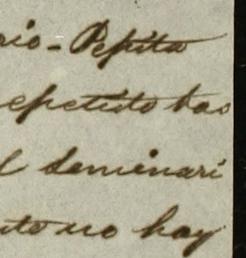 rio-Pepita
epetido las
l seminari
nte no hay